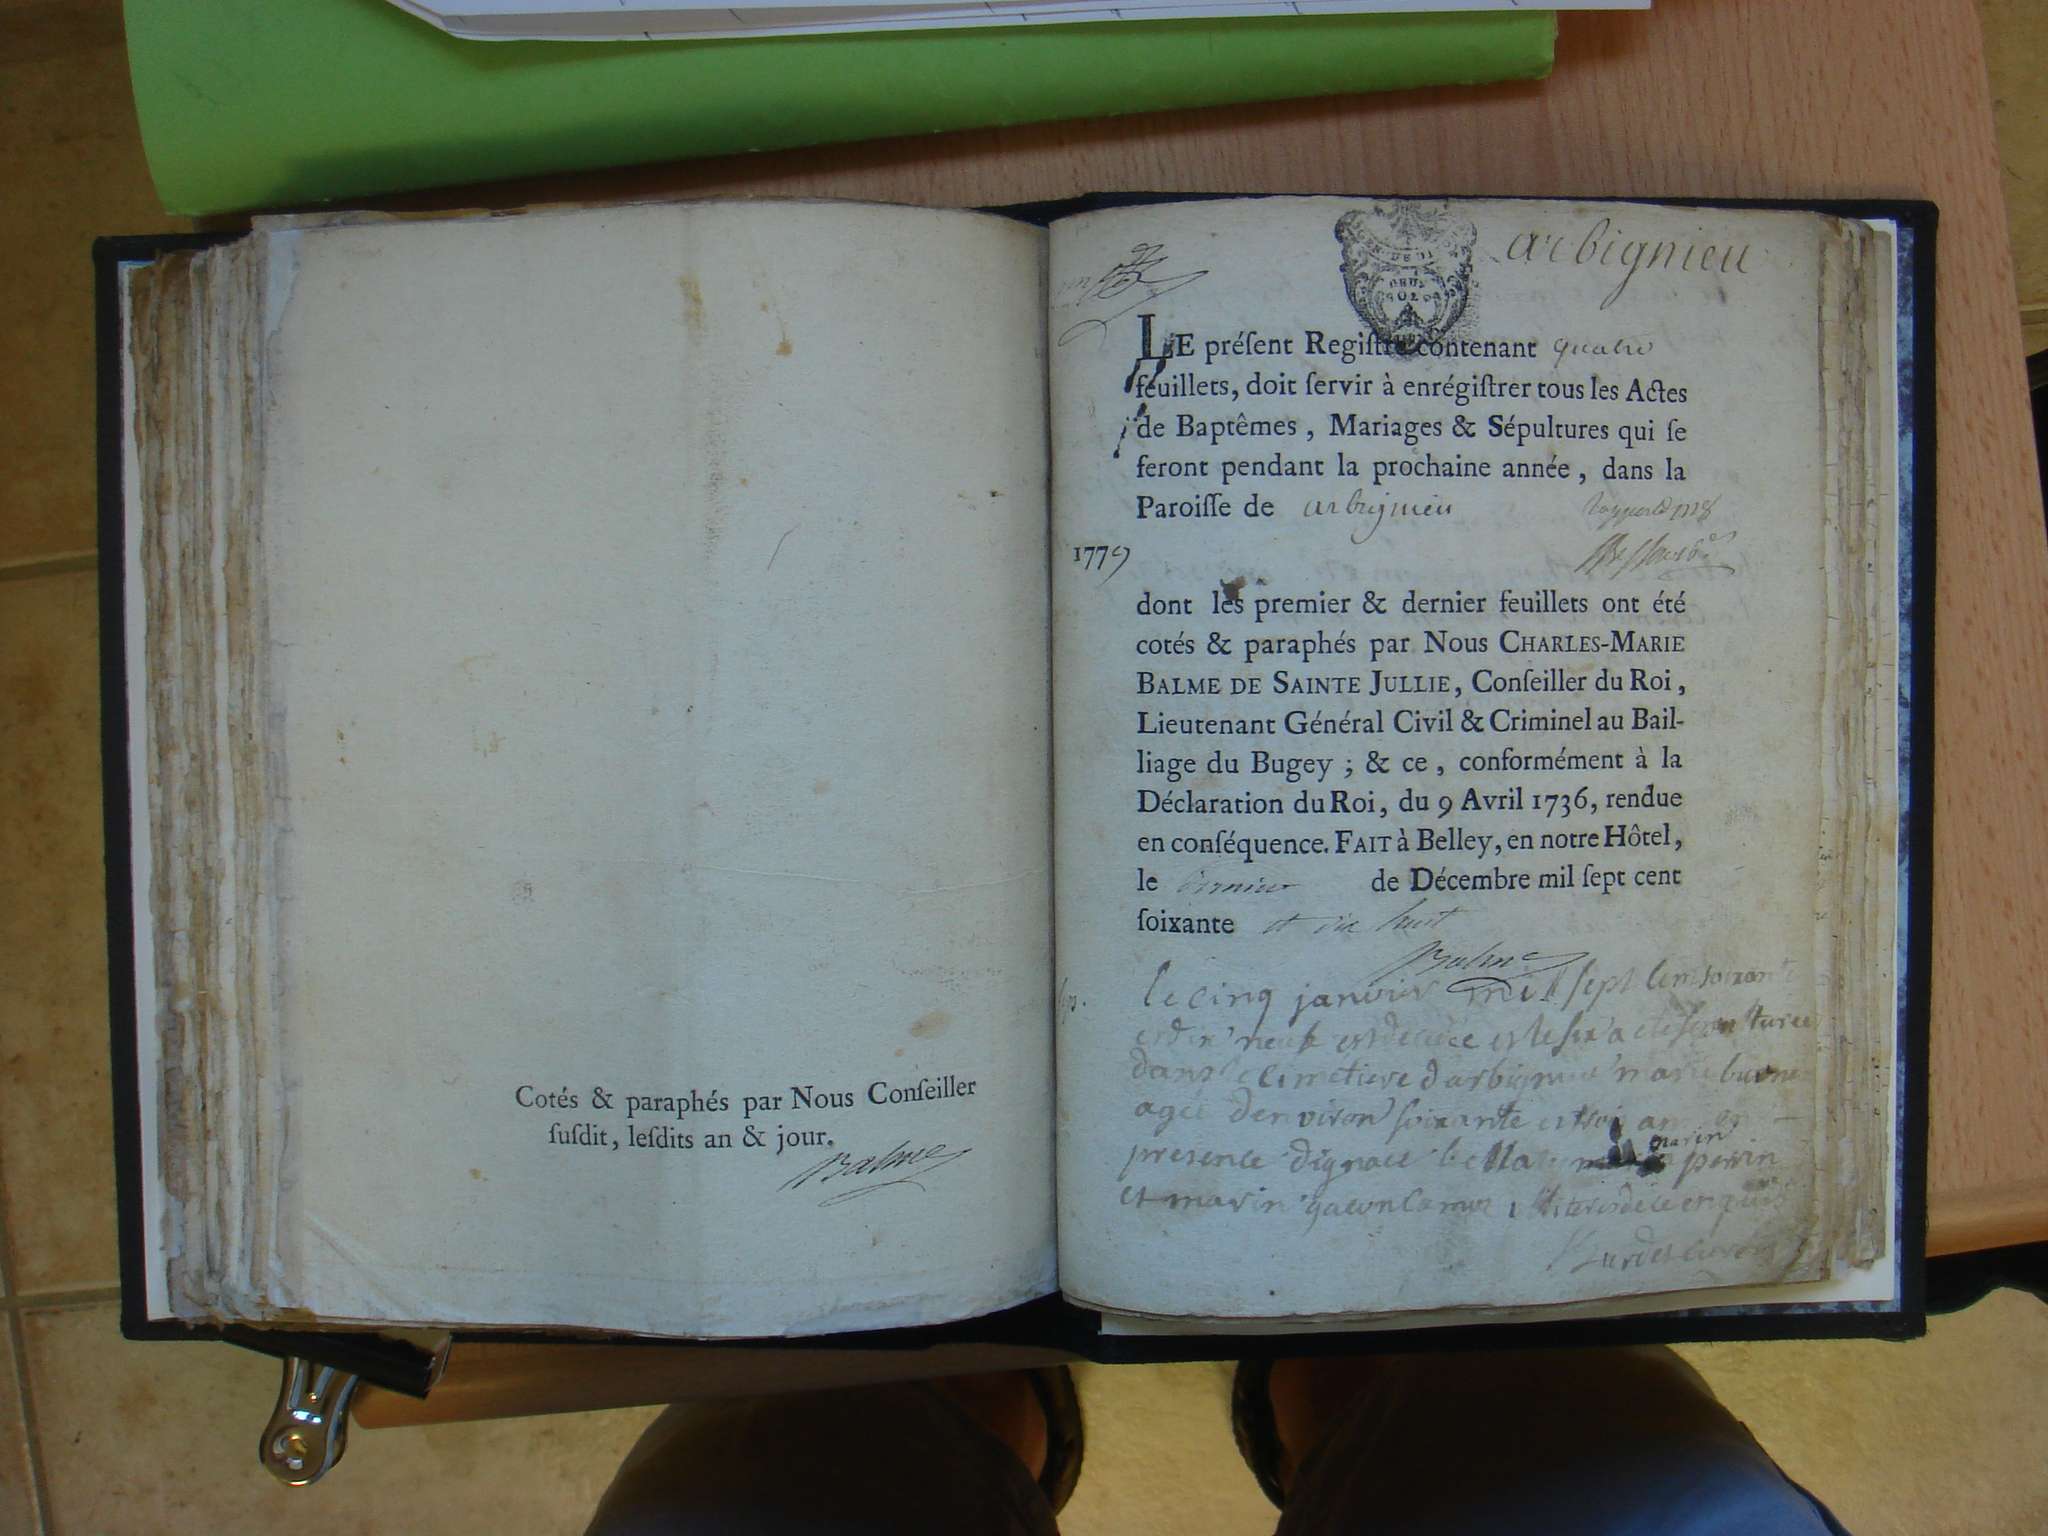 Cotés & paraphés par Nous Conſeiller
ſuſdit, leſdits an & jour.
Balme
arbignieu
GEN DE DI
DEUX
SOLS
LE préſent Regiſtre contenant quatre
feuillets, doit ſervir à enrégiſtrer tous les Actes
de Baptêmes, Mariages & Sépultures qui ſe
feront pendant la prochaine année, dans la
Paroiſſe de arbignieu
1779
dont les premier & dernier feuillets ont été
cotés & paraphés par Nous CHARLES-MARIE
BALME DE SAINTE JULLIE, Conſeiller du Roi,
Lieutenant Général Civil & Criminel au Bail-
liage du Bugey; & ce, conformément à la
Déclaration du Roi, du 9 Avril 1736, rendue
en conſéquence. FAIT à Belley, en notre Hôtel,
le dernier de Décembre mil ſept cent
ſoixante et dix huit
Balme
le cinq janvier mil sept cent soixante
et dix neuf est decedee et le six a ete sepulturee
dans le cimetiere d'arbignieu marie
agée d'environ soixante et trois ans en
presence d'ignace marin perrin
et marin